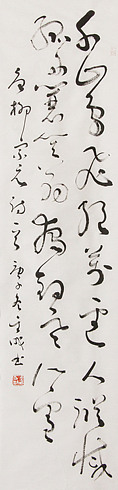 千山鳥飛絕萬徑人蹤滅
孤舟蓑笠翁獨釣寒江雪
柳宗元詩 庚子冬 書